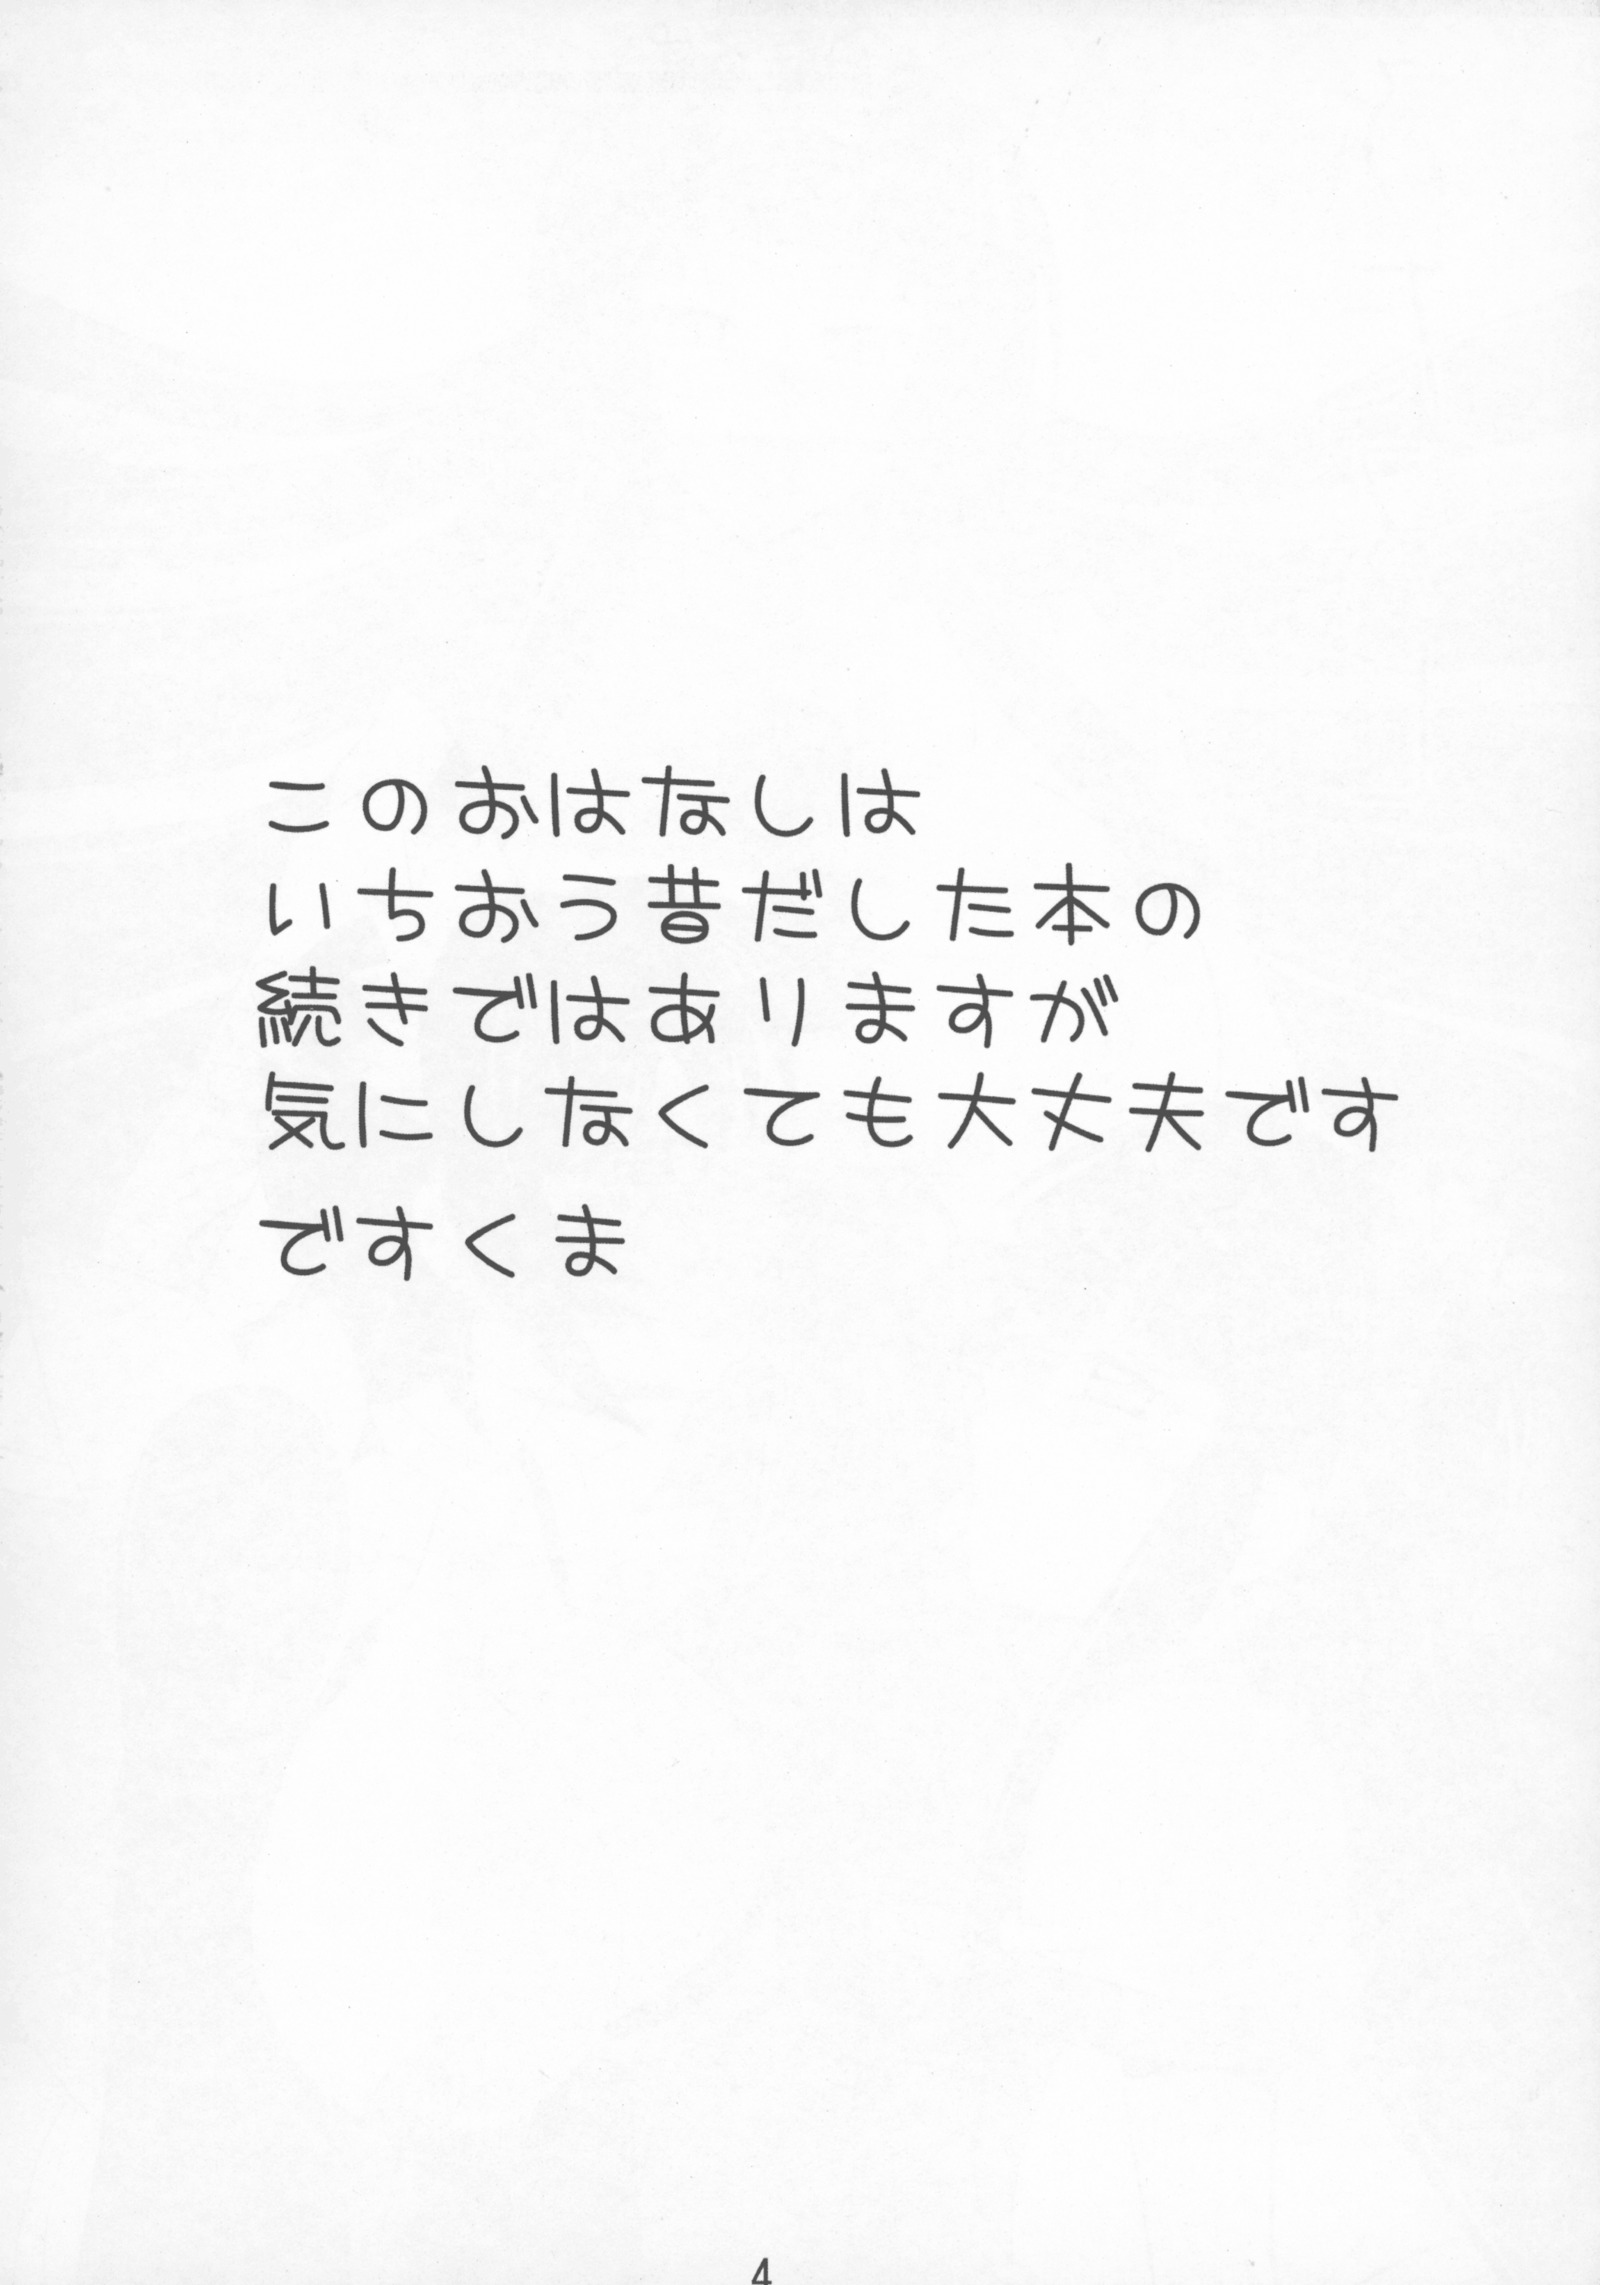 このおはなしは
いちおう昔だした本の
続きではありますが
気にしなくても大丈夫です
ですくま
4